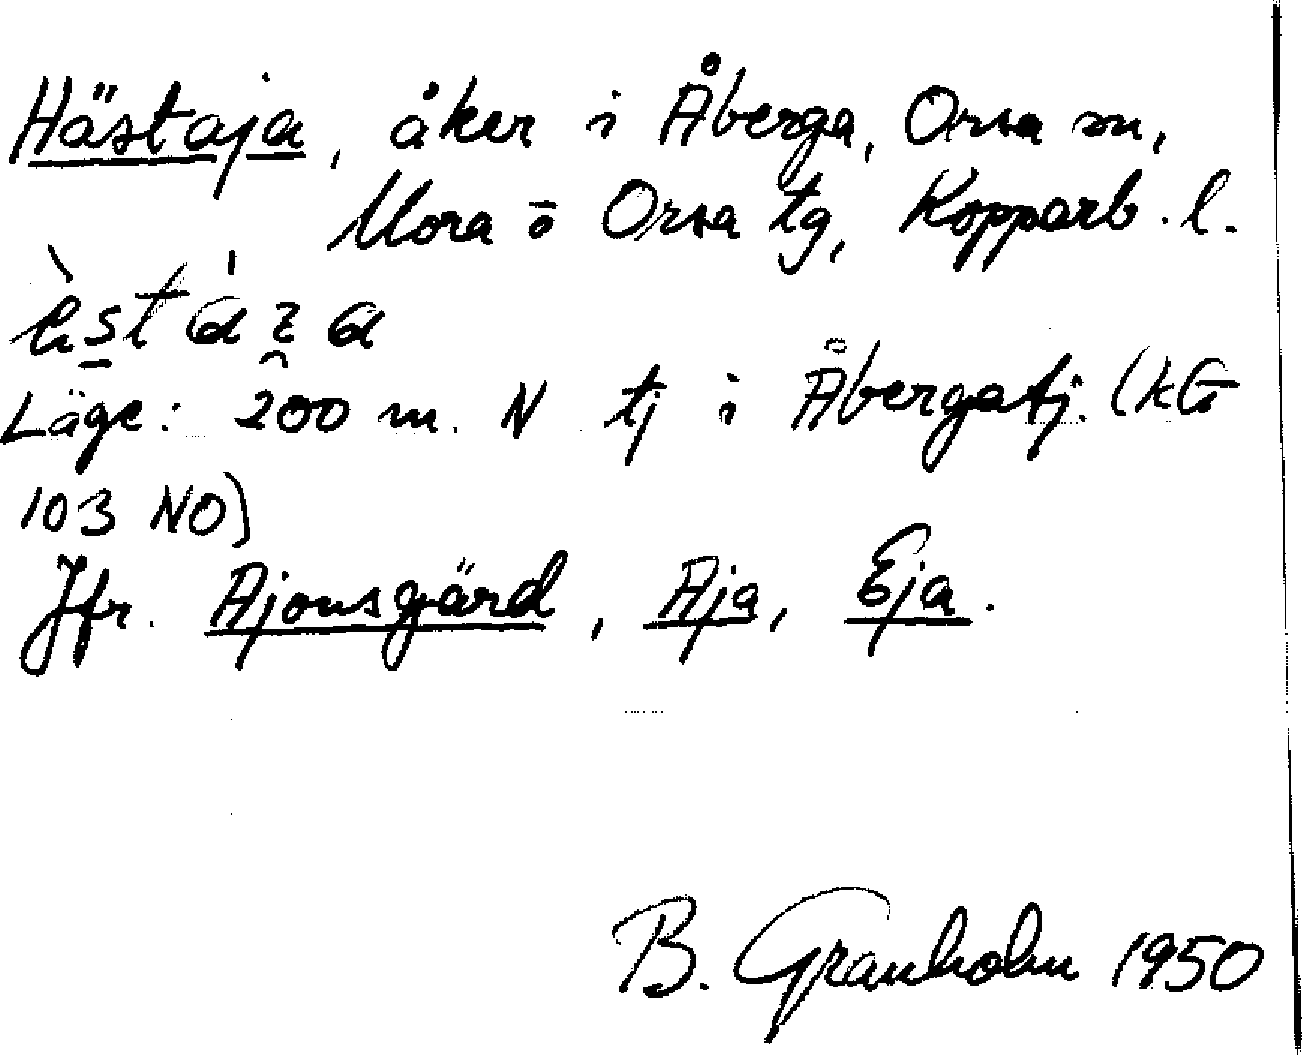 Hästaja, åker i Åberga, Orsa sn,
Mora o Orsa tg, Kopparb. l.
Läge: 200 m. N tj i Åbergatj. (kG
103 NO)
Jfr. Ajonsgärd, Aja, Eja.
B. Granholm 1950